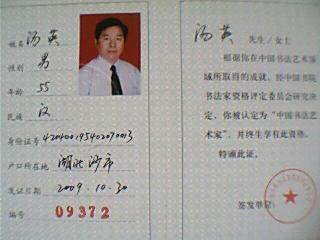 姓名 汤英
性别 男
年龄 55
民族 汉
身份证号 420400195402070013
户口所在地 湖北沙市
发证日期 2009.10.30
编号 09372
汤英 先生/女士
根据你在中国书法艺术领
域所取得的成就，经中国院
书法家资格评定委员会研究决
定，你被认定为“中国书法艺
术家”，并终生享有此资格。
特颁此证。
签发单位：